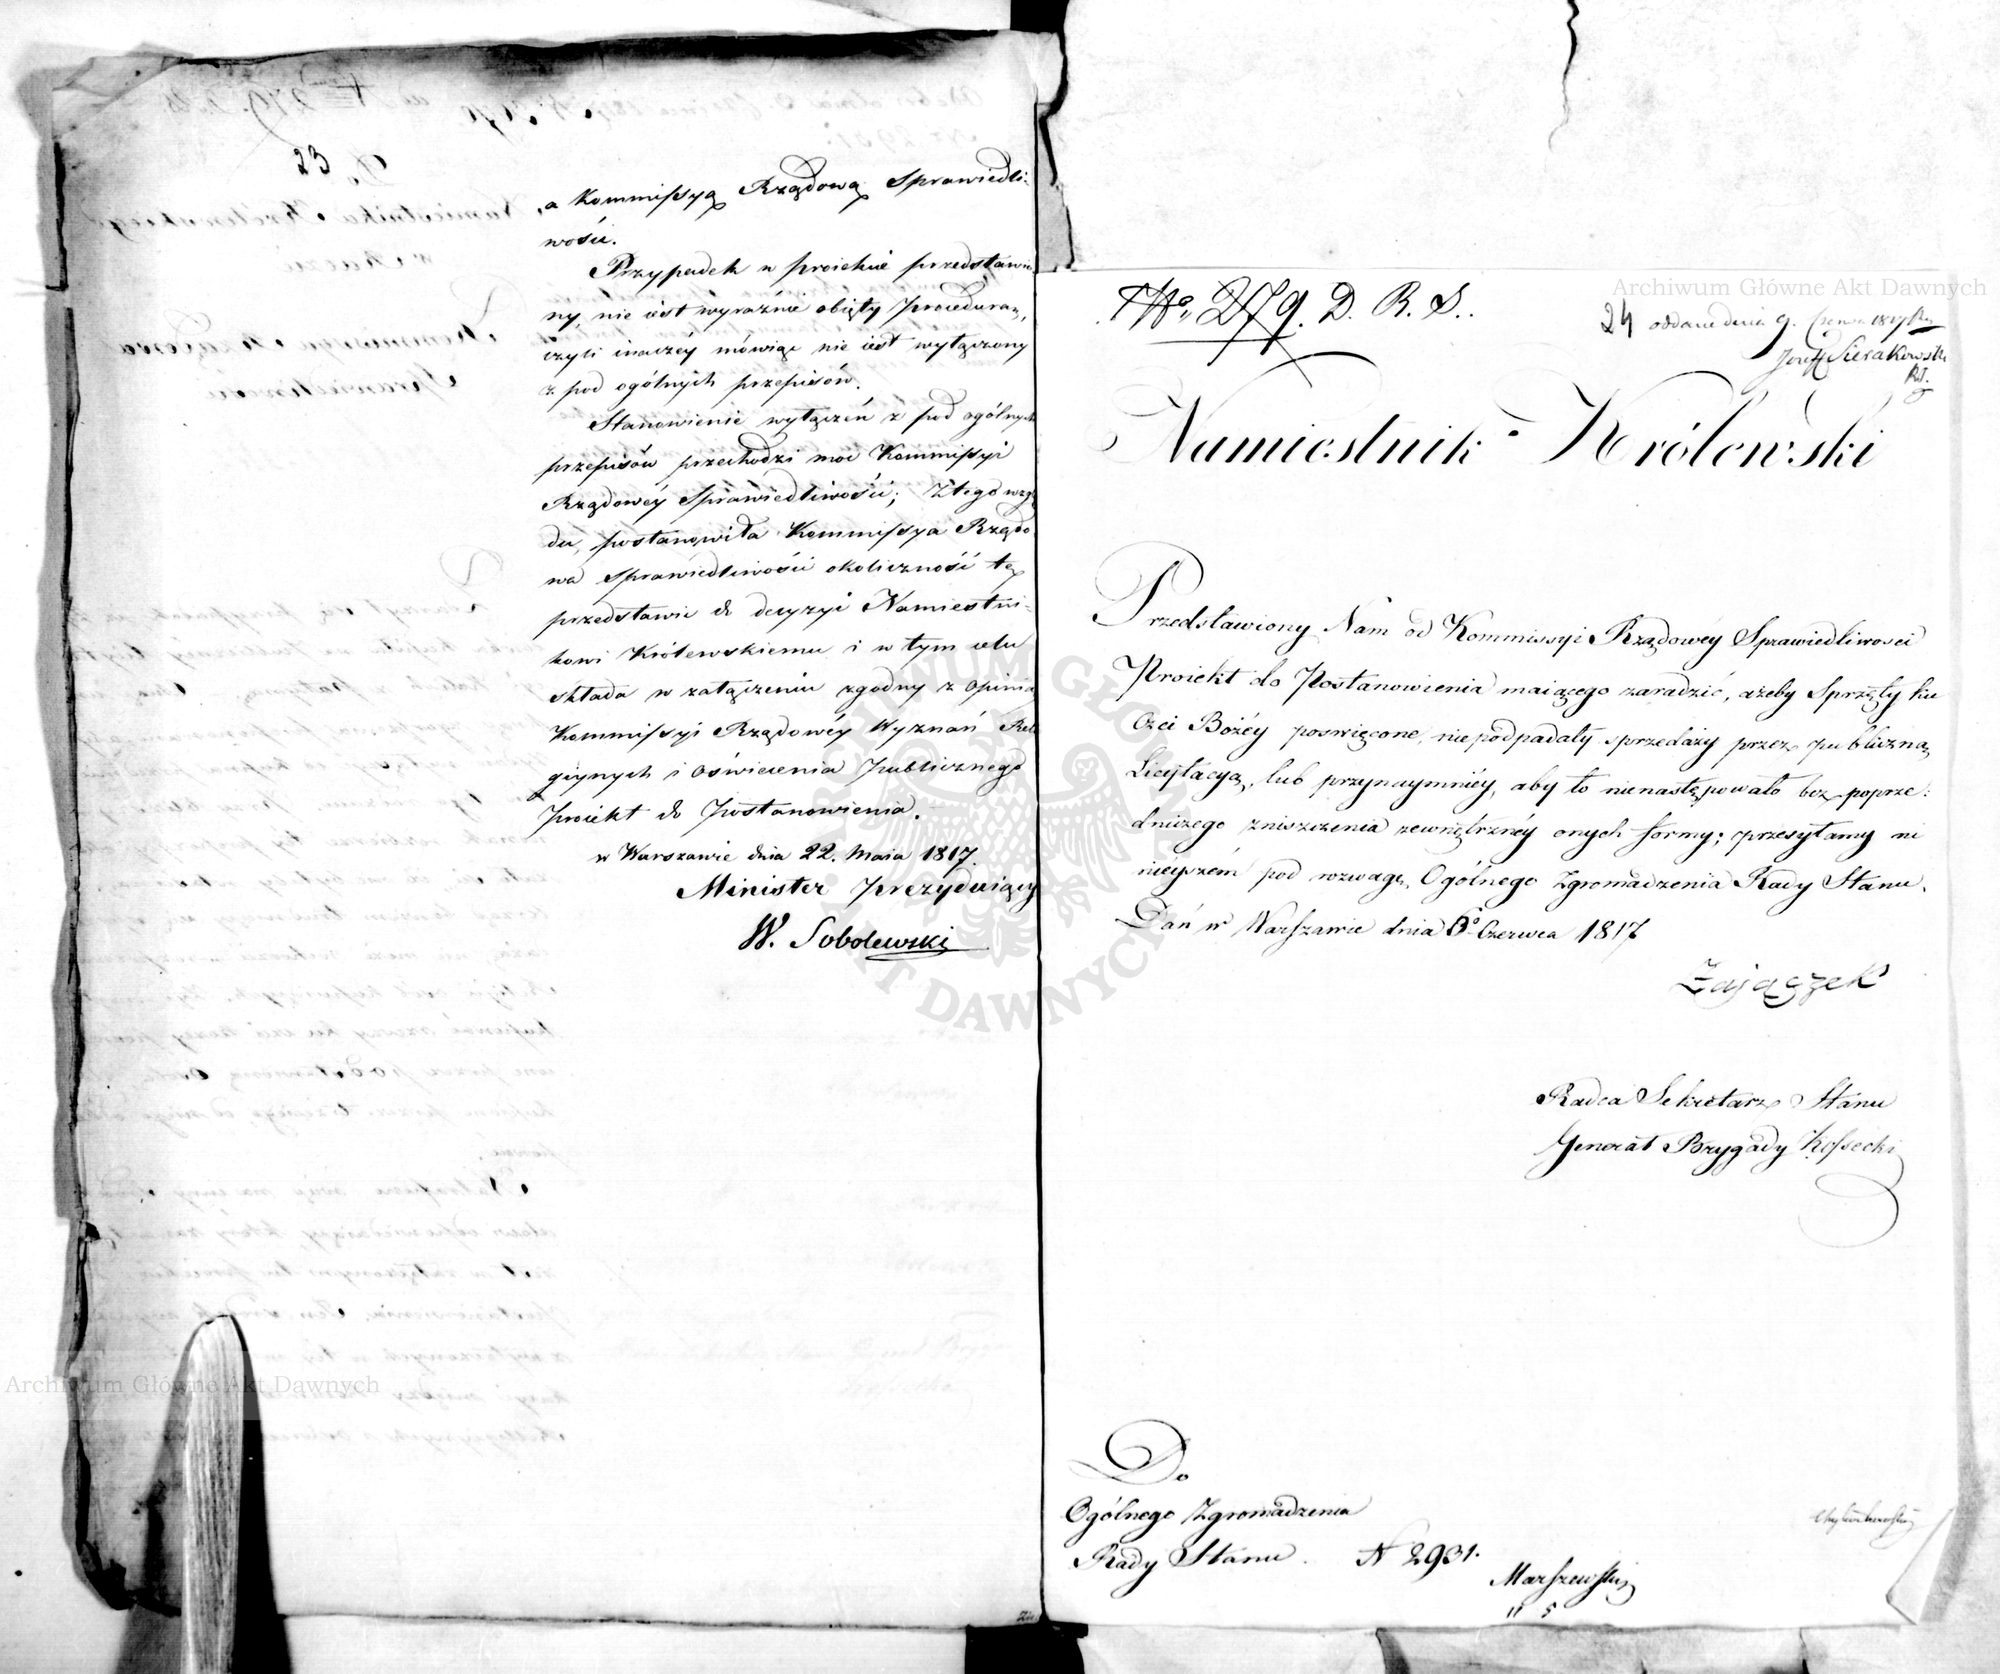 23
a Kommissyą Rządową Sprawiedli-
wości.
Przypadek w proiekcie przedstawio-
ny, nie iest wyraźnie obięty Procedurą,
czyli inaczéy mówiąc nie iest wyłączony
z pod ogólnych przepisów.
Stanowienie wyłączeń z pod ogólnych
przepisów przechodzi moc Kommissyi
Rządowéy Sprawiedliwości; Z tego wzglę
du, postanowiła Kommissya Rządo
wa Sprawiedliwości okoliczność tę
przedstawić do decyzyi Namiestni-
kowi Królewskiemu i w tym celu
składa w załączeniu zgodny z Opinią
Kommissyi Rządowéy Wyznań Reli
giynych i Oświecenia Publicznego
Proiekt do Postanowienia.
w Warszawie dnia 22. Maia 1817.
Minister Prezyduiący
W. Sobolewski
No. 279. D. R. S.
24 oddane dnia 9. Czerwca 1817
Józef Sierakowski
RS.
Namiestnik Królewski
Przedstawiony Nam od Kommissyi Rządowéy Sprawiedliwosci
Proiekt do Postanowienia maiącego zaradzić, ażeby Sprzęty ku
Czci Bożéy poswięcone, nie podpadały sprzedaży przez publiczną
Licytacyą, lub przynaymniéy, aby to nienastępowało bez poprze:
dniczego zniszczenia zewnętrznéy onych formy; przesyłamy ni
nieyszém pod rozwagę Ogólnego Zgromadzenia Rady Stanu.
Dań w Warszawie dnia 6o Czerwca 1817
Zajączek
Radca Sekretarz Stanu
Generał Brygady Kossecki
Do
Ogólnego Zgromadzenia
Rady Stanu. N 2931.
Marszewski
11 5
Archiwum Główne Akt Dawnych
Archiwum Główne Akt Dawnych
ARCHIWUM GŁÓWNE AKT DAWNYCH